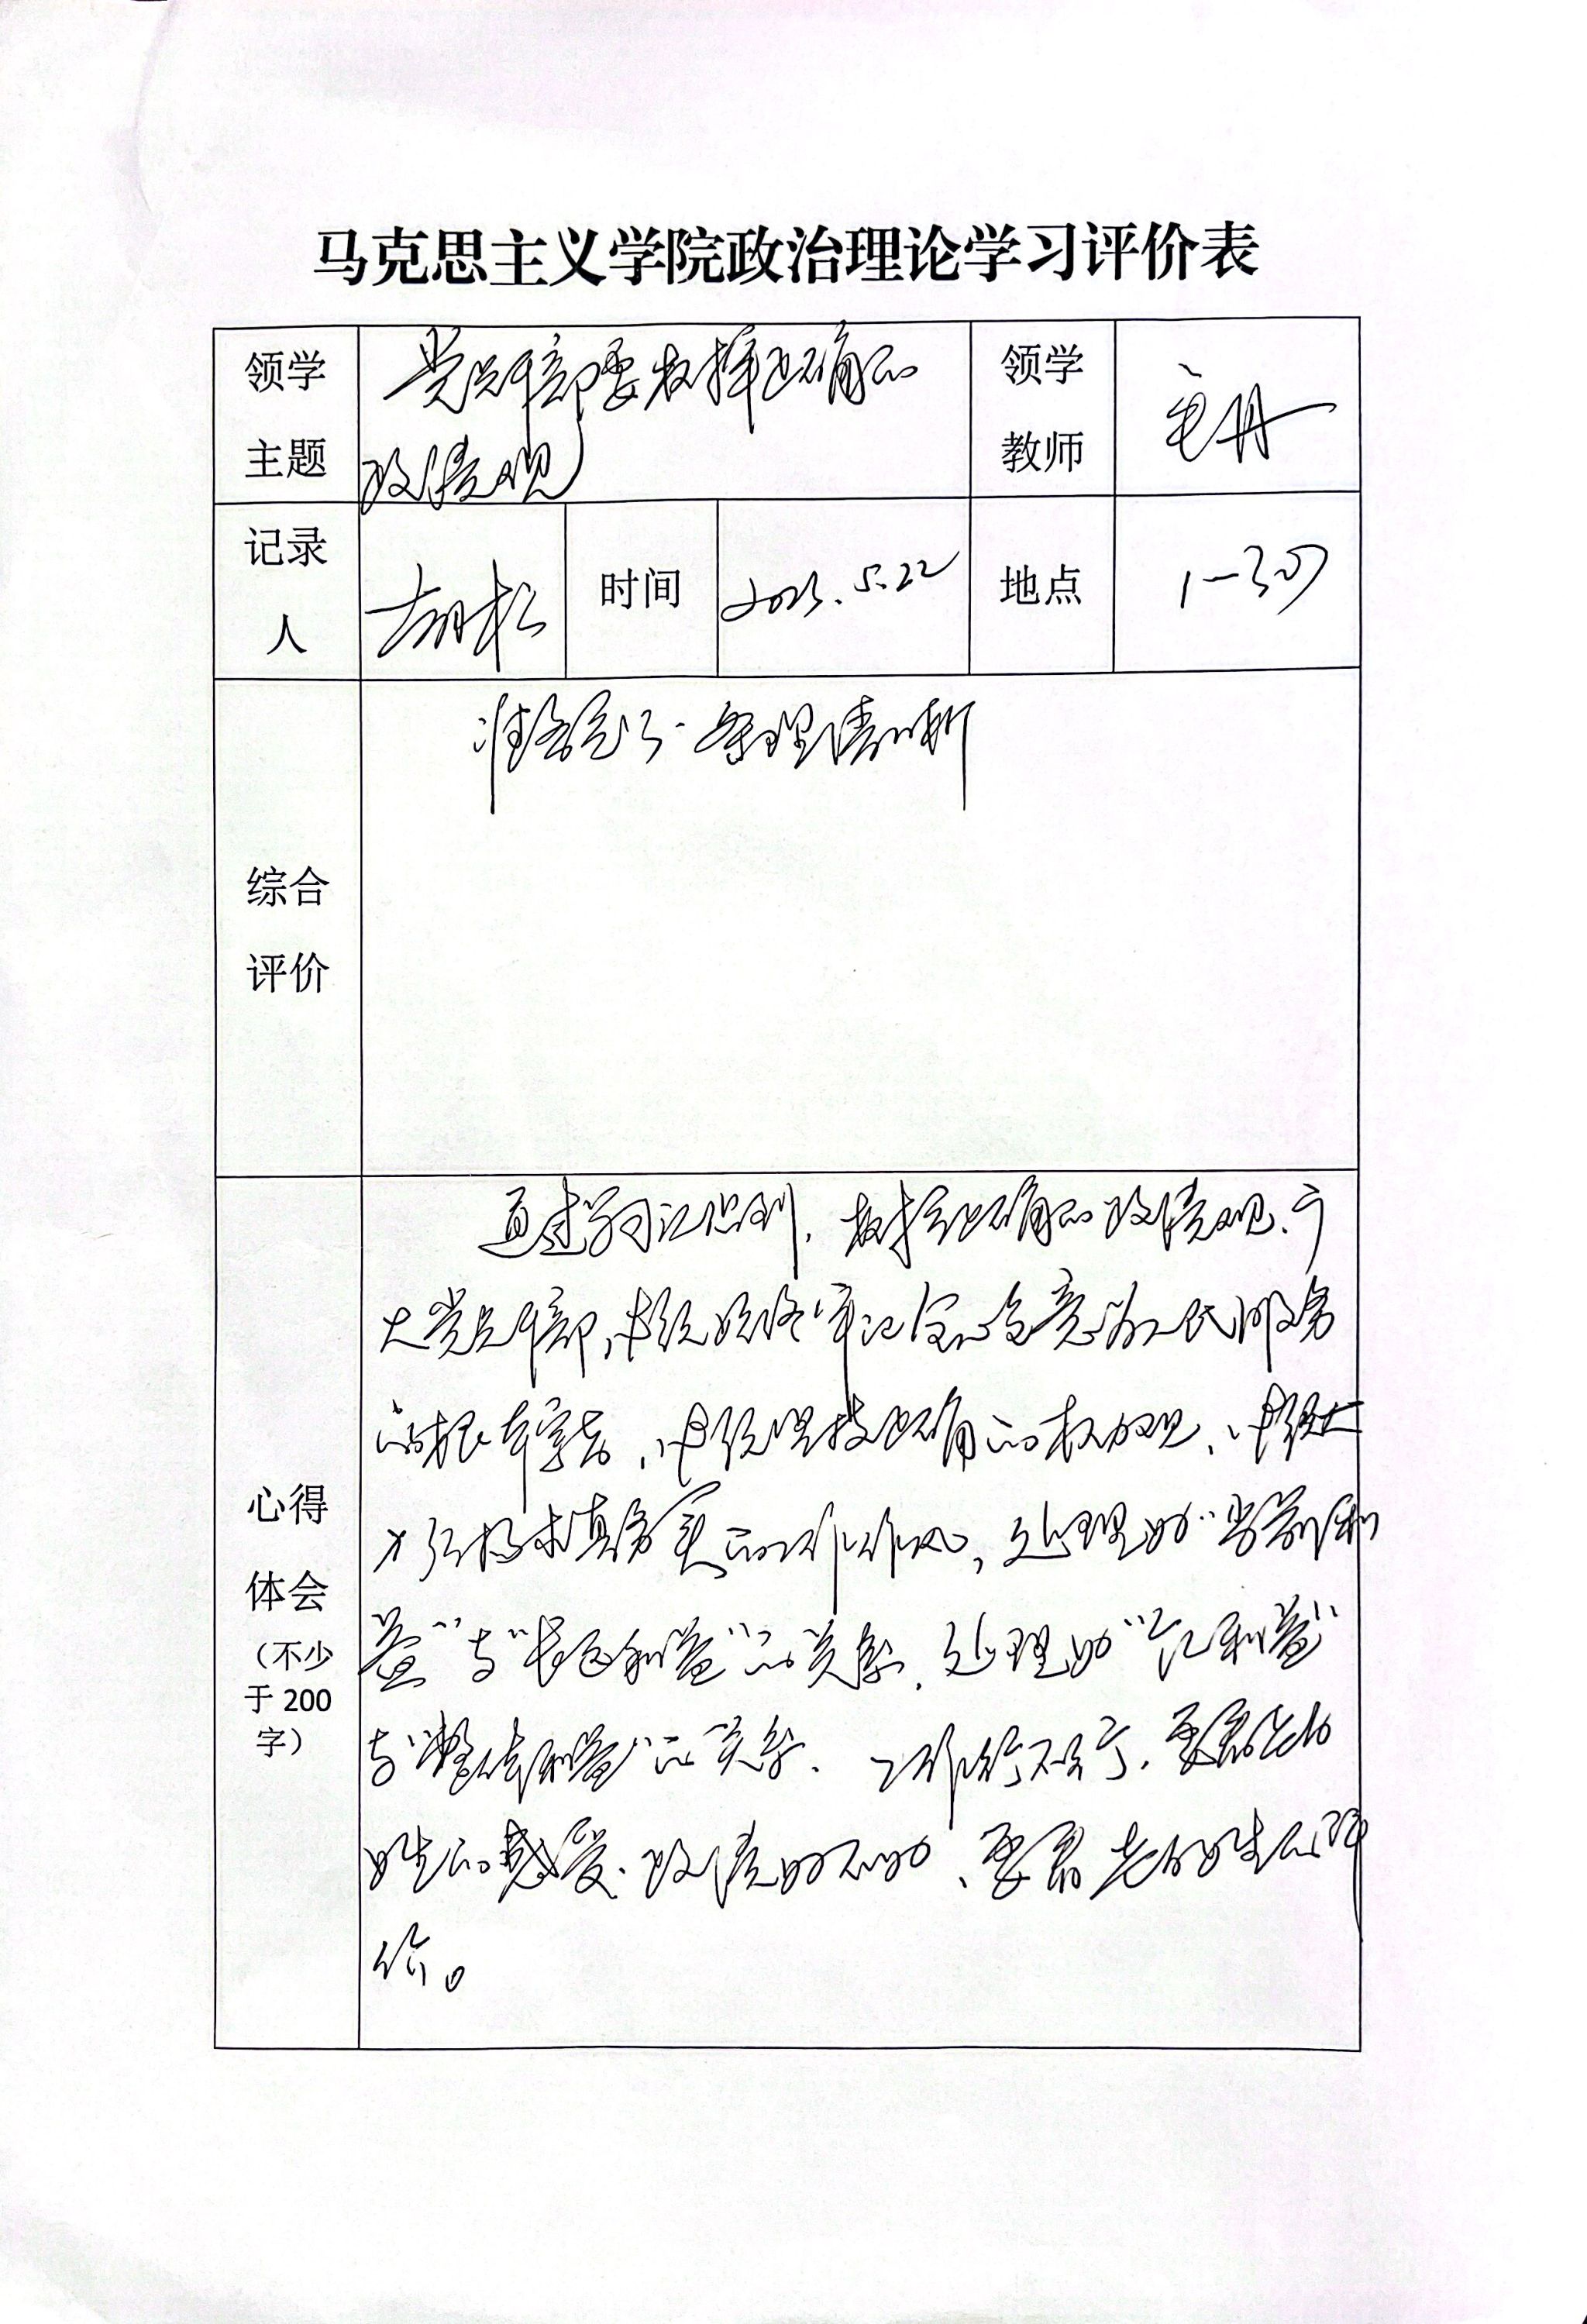 马克思主义学院政治理论学习评价表
领学
主题
党员干部要树立正确的
政绩观
领学
教师
记录
人
胡松
时间
5.22
地点
1-307
综合
评价
准备充分 条理清晰
心得
体会
（不少
于 200
字）
通过学习认识到，树立正确的政绩观，广
大党员干部，始终践行全心全意为人民服务
的根本宗旨，坚持正确的权力观，
求真务实的工作作风，处理好"当前利
益"与"长远利益"的关系，处理好"利益"
与"整体利益"的关系。工作，要看
姓的感受，政绩好不好，要看老百姓的评
价。